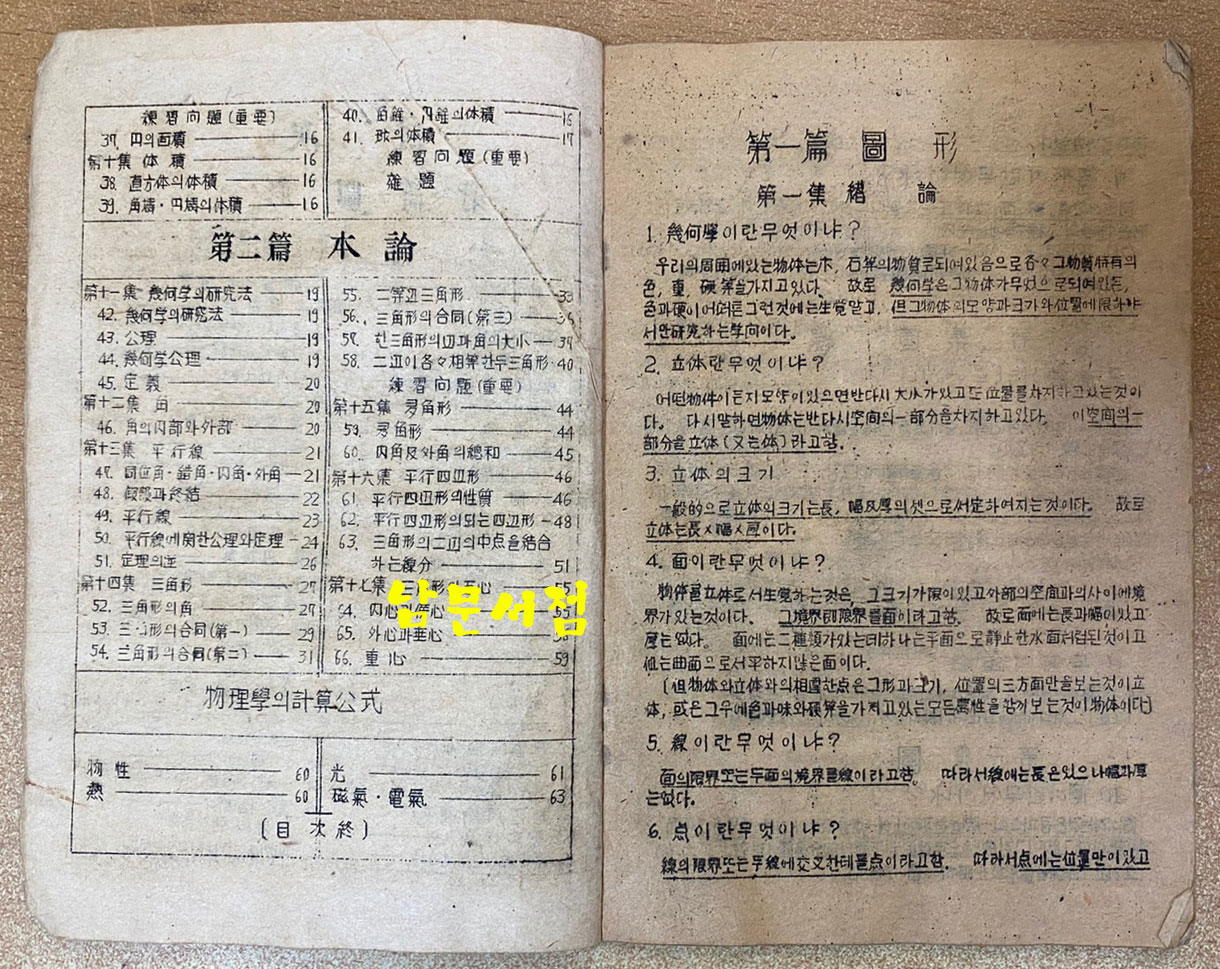 練習问題(重要)
37. 円의面積 16
第十集 体 積 16
38. 直方体의体積 16
39. 角壔・円壔의体積 16
40. 角錐・円錐의体積 16
41. 球의体積 17
練習问題(重要)
雜 題
第二篇 本 論
第十一集 幾何学의研究法 19
42. 幾何学의研究法 19
43. 公理 19
44. 幾何学公理 19
45. 定義 20
第十二集 角 20
46. 角의内部와外部 20
第十三集 平行線 21
47. 同位角・錯角・内角・外角 21
48. 假設과終結 22
49. 平行線 23
50. 平行線에関한公理와定理 24
51. 定理의逆 26
第十四集 三角形 27
52. 三角形의角 27
53. 三角形의合同(第一) 29
54. 三角形의合同(第二) 31
55. 二等辺三角形
56. 三角形의合同(第三)
57. 한三角形의辺과角의大小
58. 二辺이各々相等한두三角形 40
練習问題(重要)
第十五集 多角形 44
59. 多角形 44
60. 内角及外角의總和 45
第十六集 平行四辺形 46
61. 平行四辺形의性質 46
62. 平行四辺形의되는四辺形 48
63. 三角形의二辺의中点을結合
하는線分 51
第十七集 三角形의五心 55
64. 内心과傍心
65. 外心과垂心
66. 重心 59
남문서점
物理學의計算公式
物性 60
熱 60
光 61
磁氣・電氣 63
(目 次 終)
-1-
第一篇 圖 形
第一集 緖 論
1. 幾何學이란무엇이냐?
우리의周囲에있는物体는木, 石等의物質로되여있음으로各々그物質特有의
色, 重, 硬等을가지고있다. 故로 幾何学은그物体가무엇으로되여있든,
色과硬이어떠튼그런것에는生覚말고, 但그物体의모양과크기와位置에限하야
서만研究하는学问이다.
2. 立体란무엇이냐?
어떤物体이든지모양이있으면반다시大小가있고또位置를차지하고있는것이
다. 다시말하면物体는반다시空间의一部分을차지하고있다. 이空间의一
部分을立体(又는体)라고함.
3. 立体의크기
一般的으로立体의크기는長, 幅及厚의셋으로서定하여지는것이다. 故로
立体는長×幅×厚이다.
4. 面이란무엇이냐?
物体를立体로서生覚하는것은 그크기가限이있고外部의空间과의사이에境
界가있는것이다. 그境界即限界를面이라고함. 故로面에는長과幅이있고
厚는없다. 面에는二種類가있는데하나는平面으로静止한水面서럼된것이고
他는曲面으로서平하지않은面이다.
(但物体와立体와의相違한点은그形과크기, 位置의三方面만을보는것이立
体, 或은그우에色과味와硬等을가지고있는모든屬性을함께보는것이物体이다)
5. 線이란무엇이냐?
面의限界또는두面의境界를線이라고함. 따라서線에는長은있으나幅과厚
는없다.
6. 点이란무엇이냐?
線의限界또는두線에交叉한데를点이라고함. 따라서点에는位置만이있고